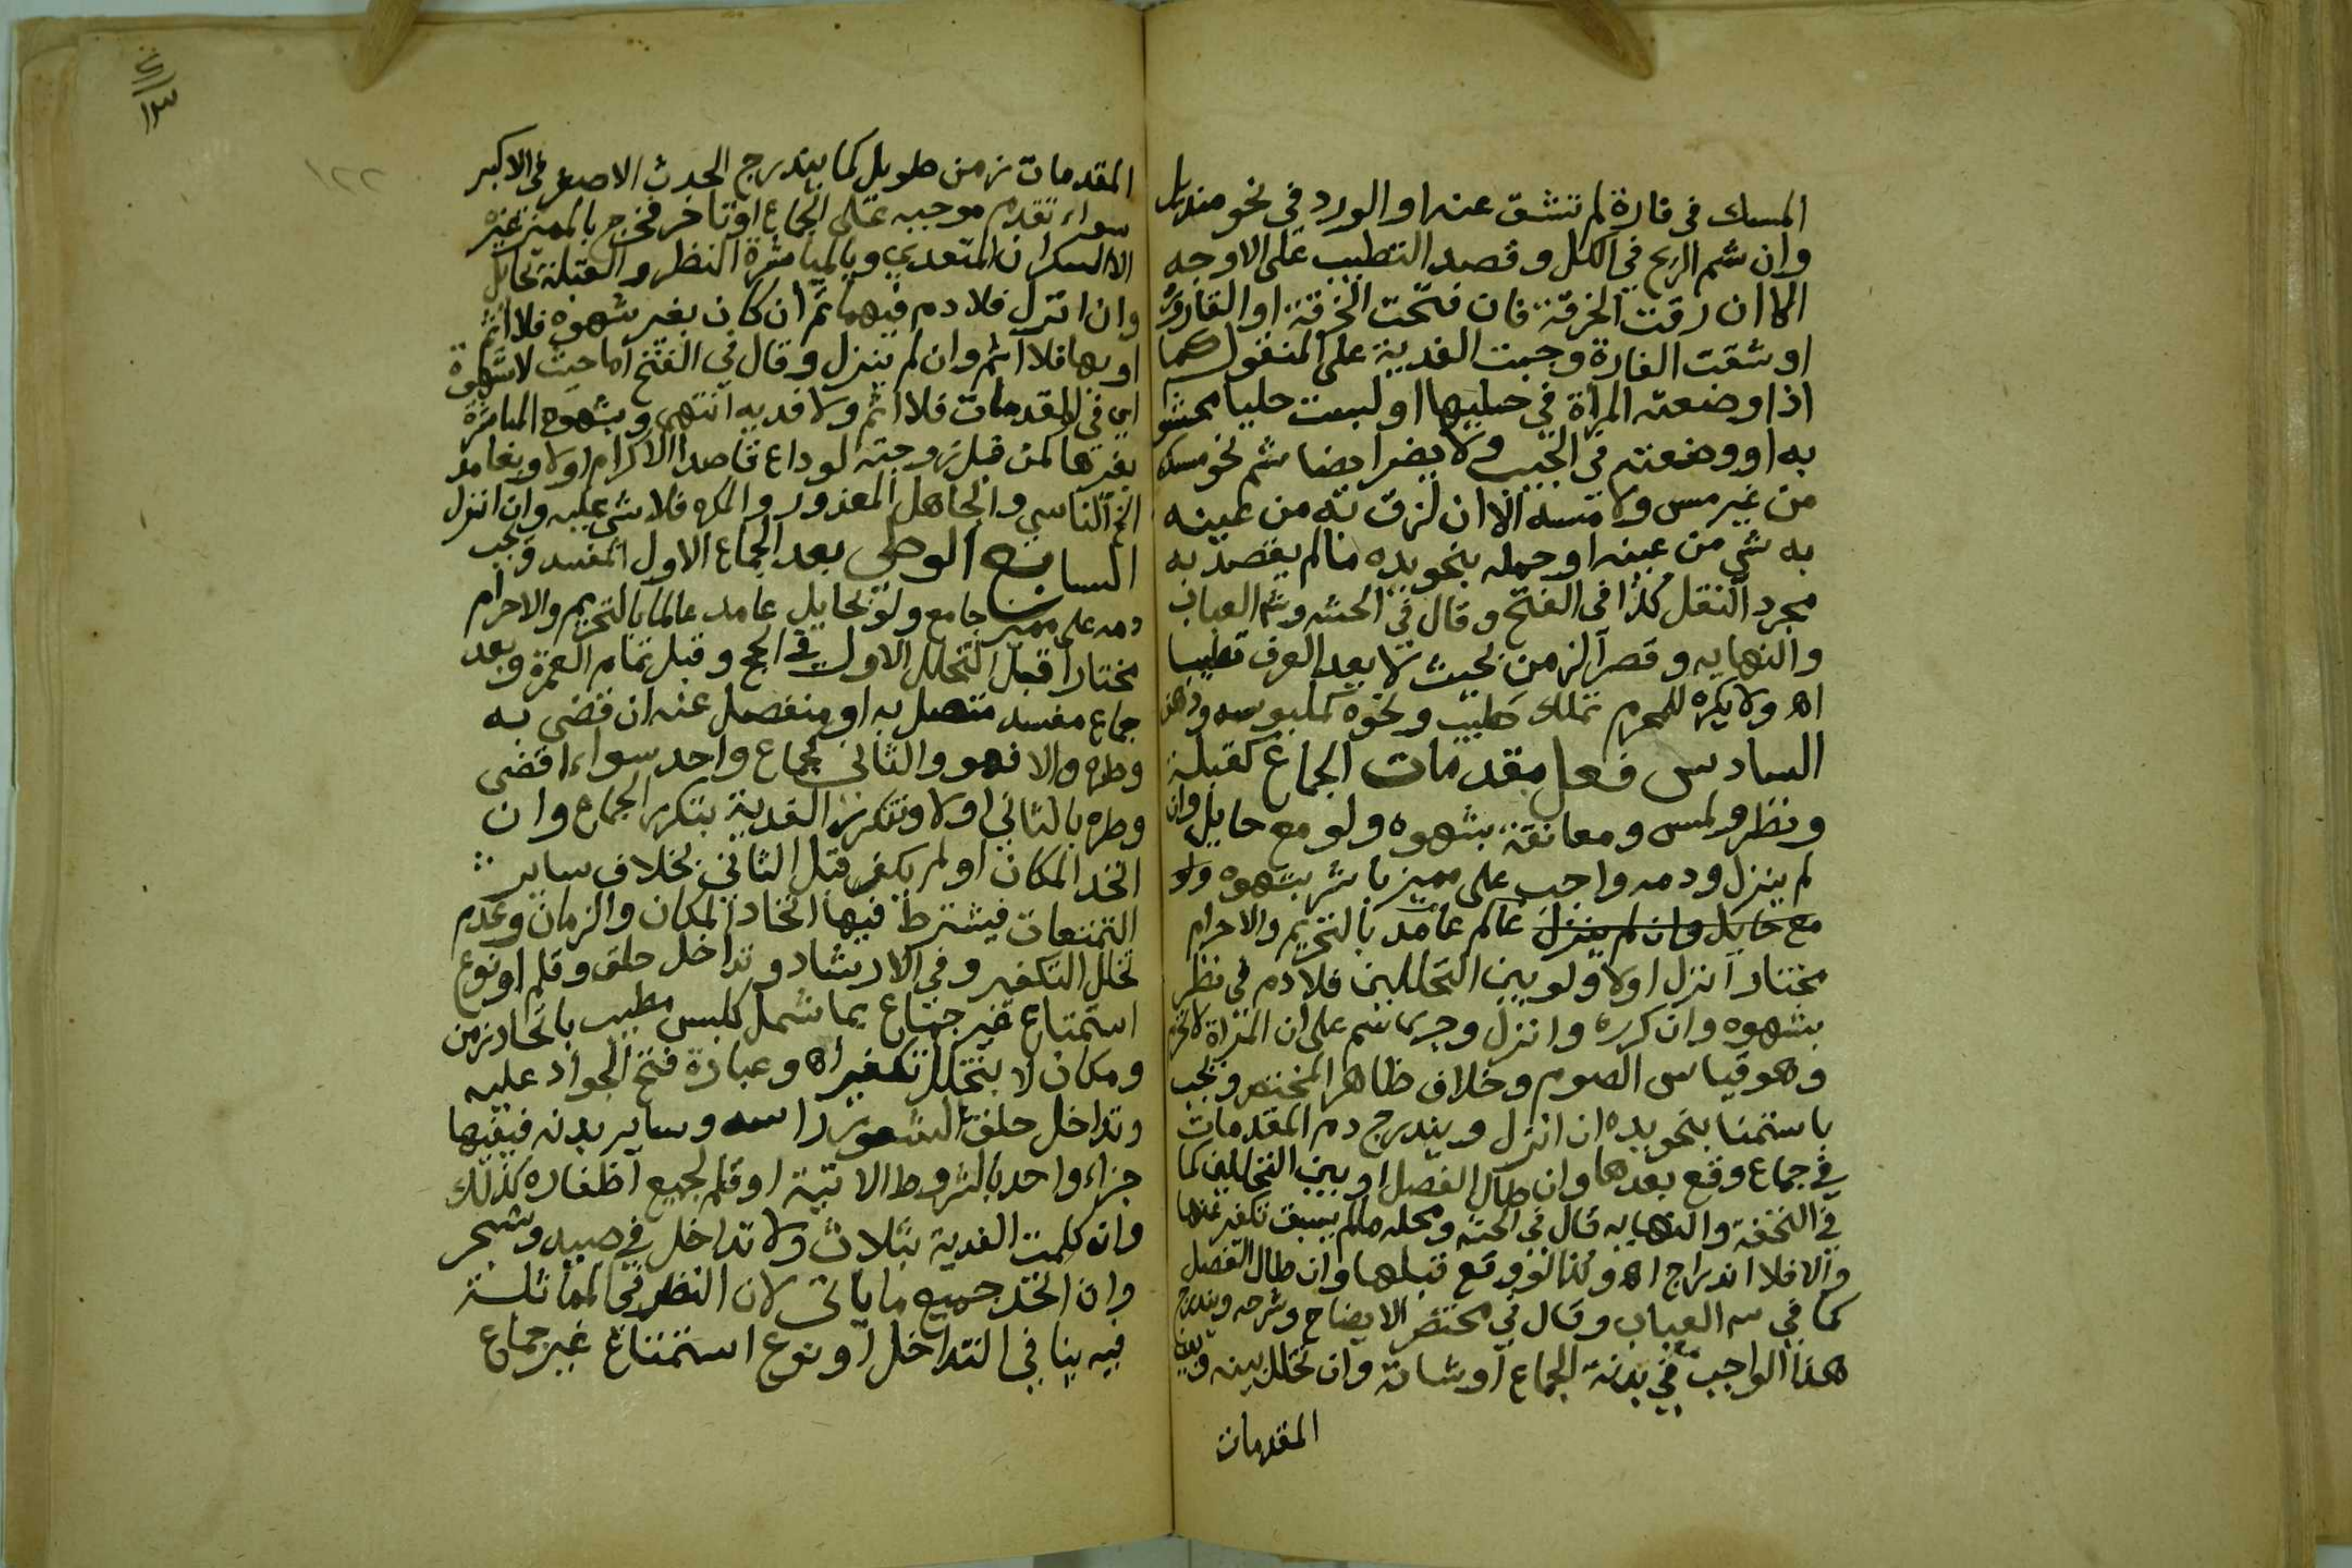 المسك في فارة لم تنشق عنه او الورد في نحو منديل
وان شم الريح في الكل وقصد التطيب على الاوجه
الا ان رقت الخرقة فان فتحت الخرقة او القارورة
او شقت الفارة وجبت الفدية على المنقول كما
اذا وضعته المراة في حليها او لبست حليا محشوا
به او وضعته في الجيب ولا يضر ايضا شم نحو مسك
من غير مس ولا مسه الا ان لزق به من عينه
به شي من عينه او حمله بنحو يده ما لم يقصد به
مجرد النقل كذا في الفتح وقال في الحشه وشم العباب
والنهايه وقصر الزمن بحيث لا يعد العرف تطيبا
اه ولا يكره للمحرم تملك طيب ونحوه كملبوسه ودهن
السادس فعل مقدمات الجماع كقبلة
ونظر ولمس ومعانقة بشهوه ولو مع حايل وان
لم ينزل ودمه واجب على مميز باشر بشهوه ولو
مع حايل وان لم ينزل عالم عامد بالتحريم والاحرام
مختار انزل اولا ولو بين التحللين فلا دم في نظر
بشهوه وان كرره وانزل وجرى شم على ان المراة لا تحرم
وهو قياس الصوم وخلاف ظاهر المختصر ويجب
باستمنا بنحو يده ان انزل ويندرج دم المقدمات
في جماع وقع بعدها وان طال الفصل او بين التحللين كما
في التحفة والنهايه قال في الحشه ومحله ما لم يسبق تكفير عنها
والا فلا اندراج اه وكذا لو وقع قبلها وان طال الفصل
كما في شم العباب وقال في مختصر الايضاح وشرحه ويندرج
هذا الواجب في بدنة الجماع او شاته وان تخلل بينه وبين
المقدمات
١٢٢
المقدمات زمن طويل كما يندرج الحدث الاصغر في الاكبر
سواء تقدم موجبه على الجماع او تاخر فخرج بالمميز غيره
الا السكران المتعدي وبالمباشرة النظر والقبلة بحايل
وان انزل فلا دم فيهما ثم ان كان بغير شهوه فلا اثم
او بها فلا اثم وان لم ينزل وقال في الفتح اما حيث لا شهوة
اي في المقدمات فلا اثم ولا فديه انتهى وبشهوه المباشرة
بغيرها كمن قبل زوجته لوداع قاصدا الاكرام اولا وبعامد
الخ الناسي والجاهل المعذور والمكره فلا شي عليه وان انزل
السابع الوطي بعد الجماع الاول المفسد ويجب
دمه على مميز جامع ولو بحايل عامدا عالما بالتحريم والاحرام
مختارا قبل التحلل الاول في الحج وقبل تمام العمرة وبعد
جماع مفسد متصل به او منفصل عنه ان قضى به
وطره والا فهو والثاني كجماع واحد سواء اقضى
وطره بالثاني اولا وتتكرر الفدية بتكرر الجماع وان
اتحد المكان او لم يكفر قبل الثاني بخلاف ساير
التمتعات فيشترط فيها اتحاد المكان والزمان وعدم
تخلل التكفير وفي الارشاد وتداخل حلق وقلم او نوع
استمتاع غير جماع بما شمل كلبس مطيب باتحاد زمن
ومكان لا بتخلل تكفير اه وعبارة فتح الجواد عليه
وتداخل حلق الشعور راسه وساير بدنه فيقيها
جزاء واحد بالشروط الاتية او قلم لجميع اظفاره كذلك
وان كملت الفدية بثلاث ولا تداخل في صيد وشجر
وان اتحد جميع ما ياتي لان النظر في المماثلة
فيه ينافي التداخل او نوع استمتاع غير جماع